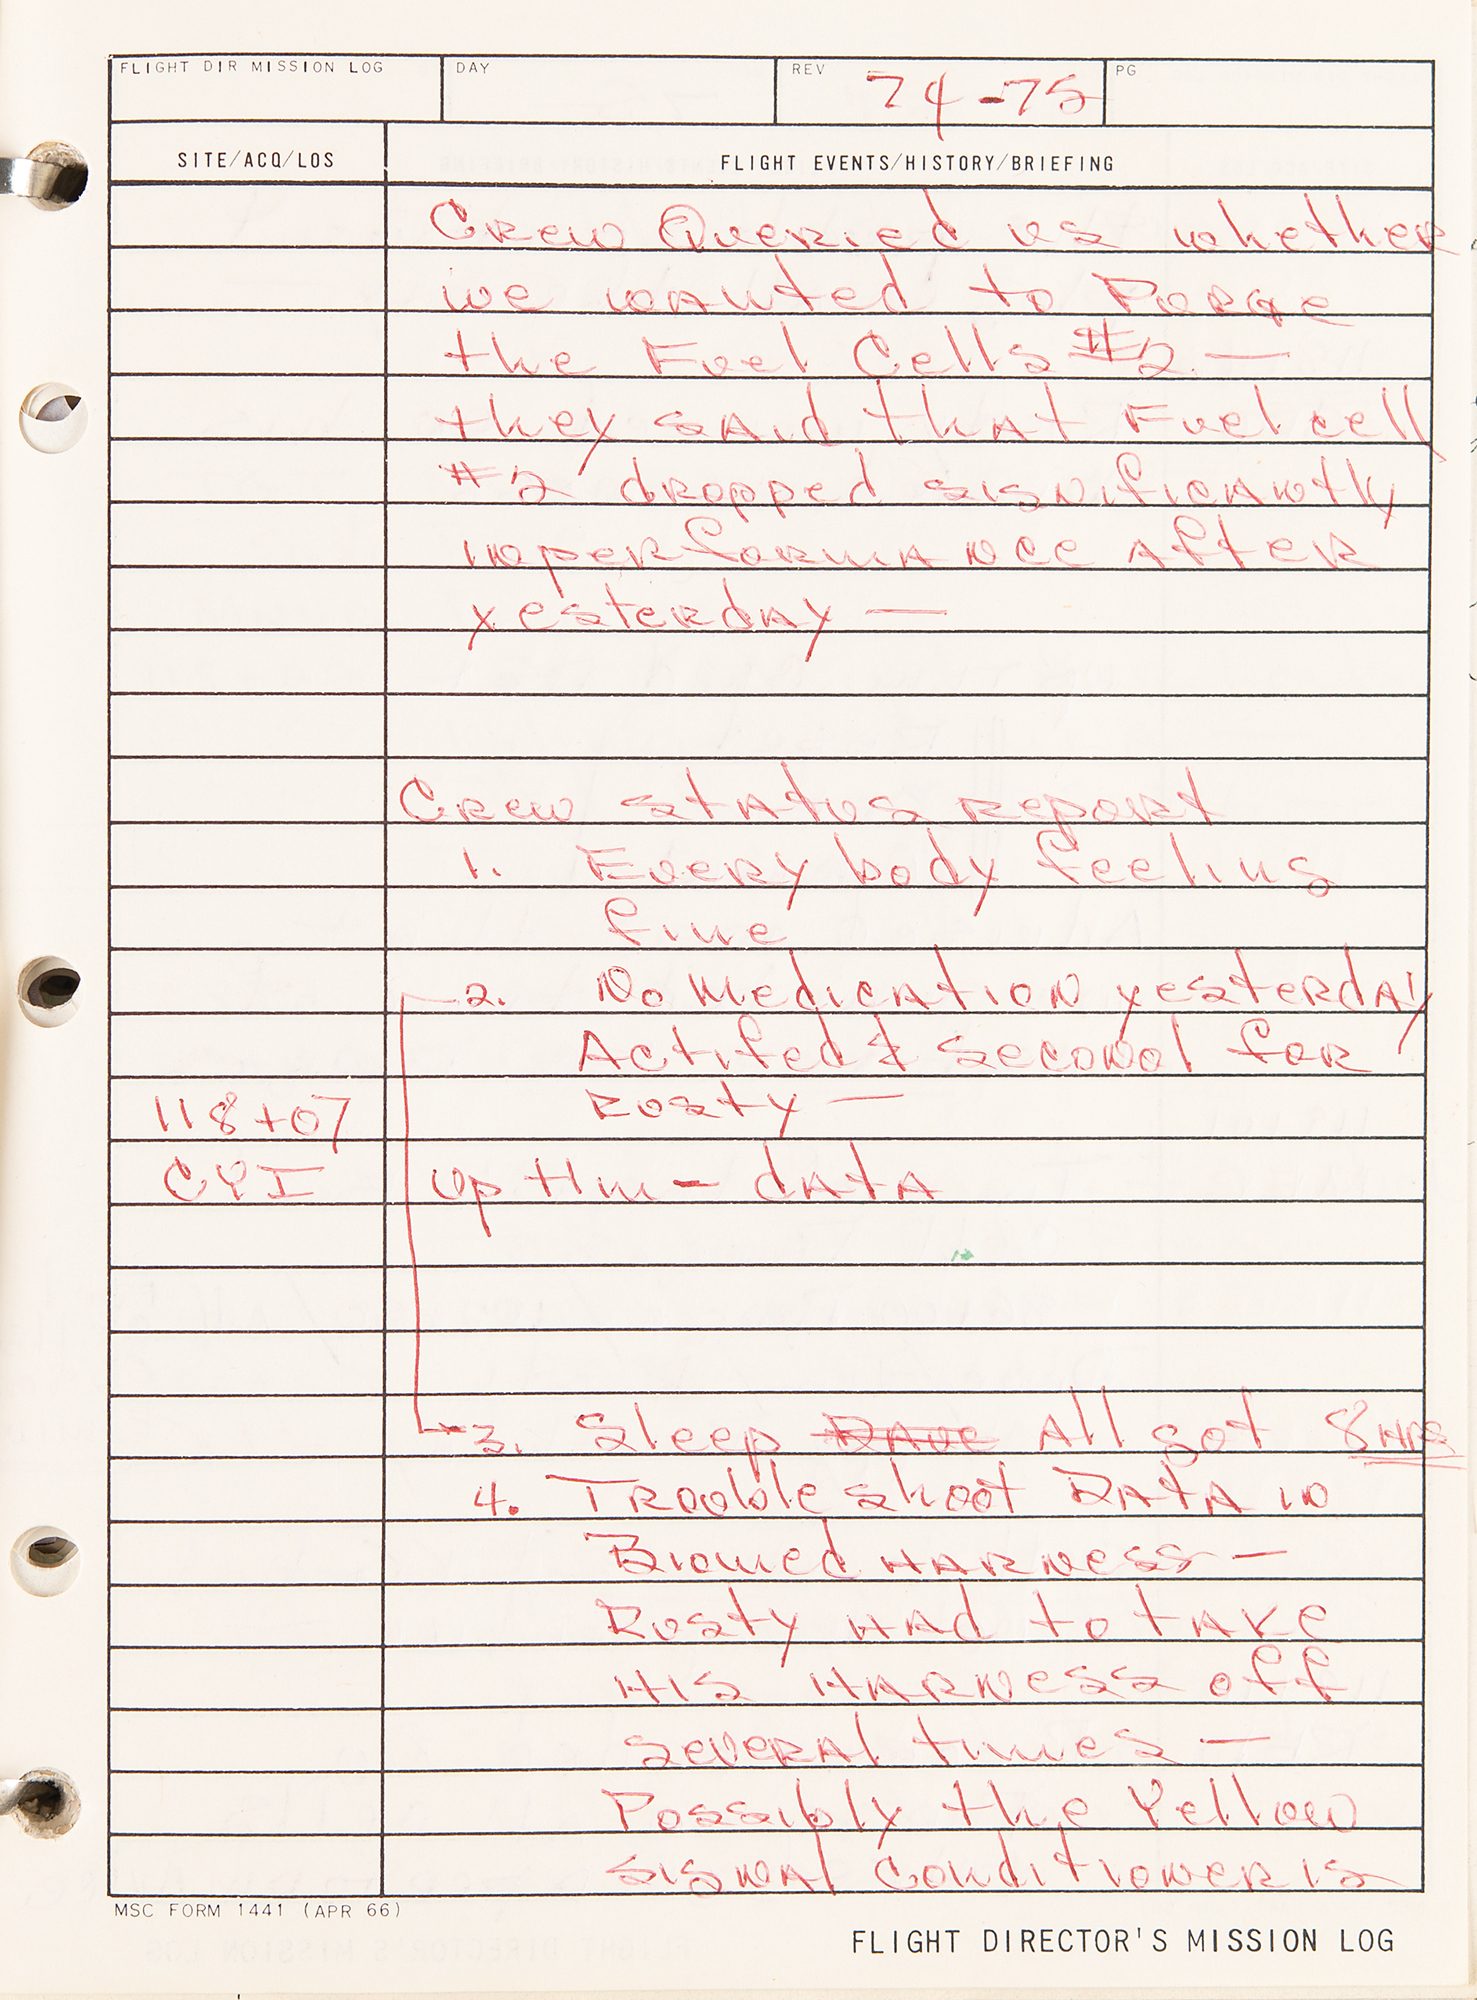 FLIGHT DIR MISSION LOG DAY REV 74-75 PG
SITE/ACQ/LOS FLIGHT EVENTS/HISTORY/BRIEFING
Crew Queried us whether
we wanted to Purge
the Fuel Cells #2 —
they said that Fuel cell
#2 dropped significantly
in performance after
yesterday —
Crew status report
1. Everybody feeling
fine
2. No Medication yesterday
Actifed & Seconol for
118+07 Rusty —
CYI up tlm - data
3. Sleep Dave All got 8 HRS
4. Trouble shoot Data in
Biomed HARNESS —
Rusty HAD to take
HIS HARNESS off
several times —
Possibly the Yellow
signal conditioner is
MSC FORM 1441 (APR 66)
FLIGHT DIRECTOR'S MISSION LOG